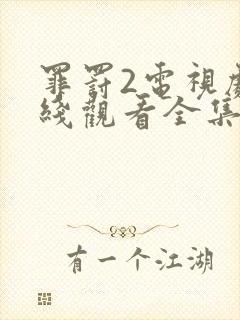 罪罰2電視劇
綫觀看全集
有一个江湖